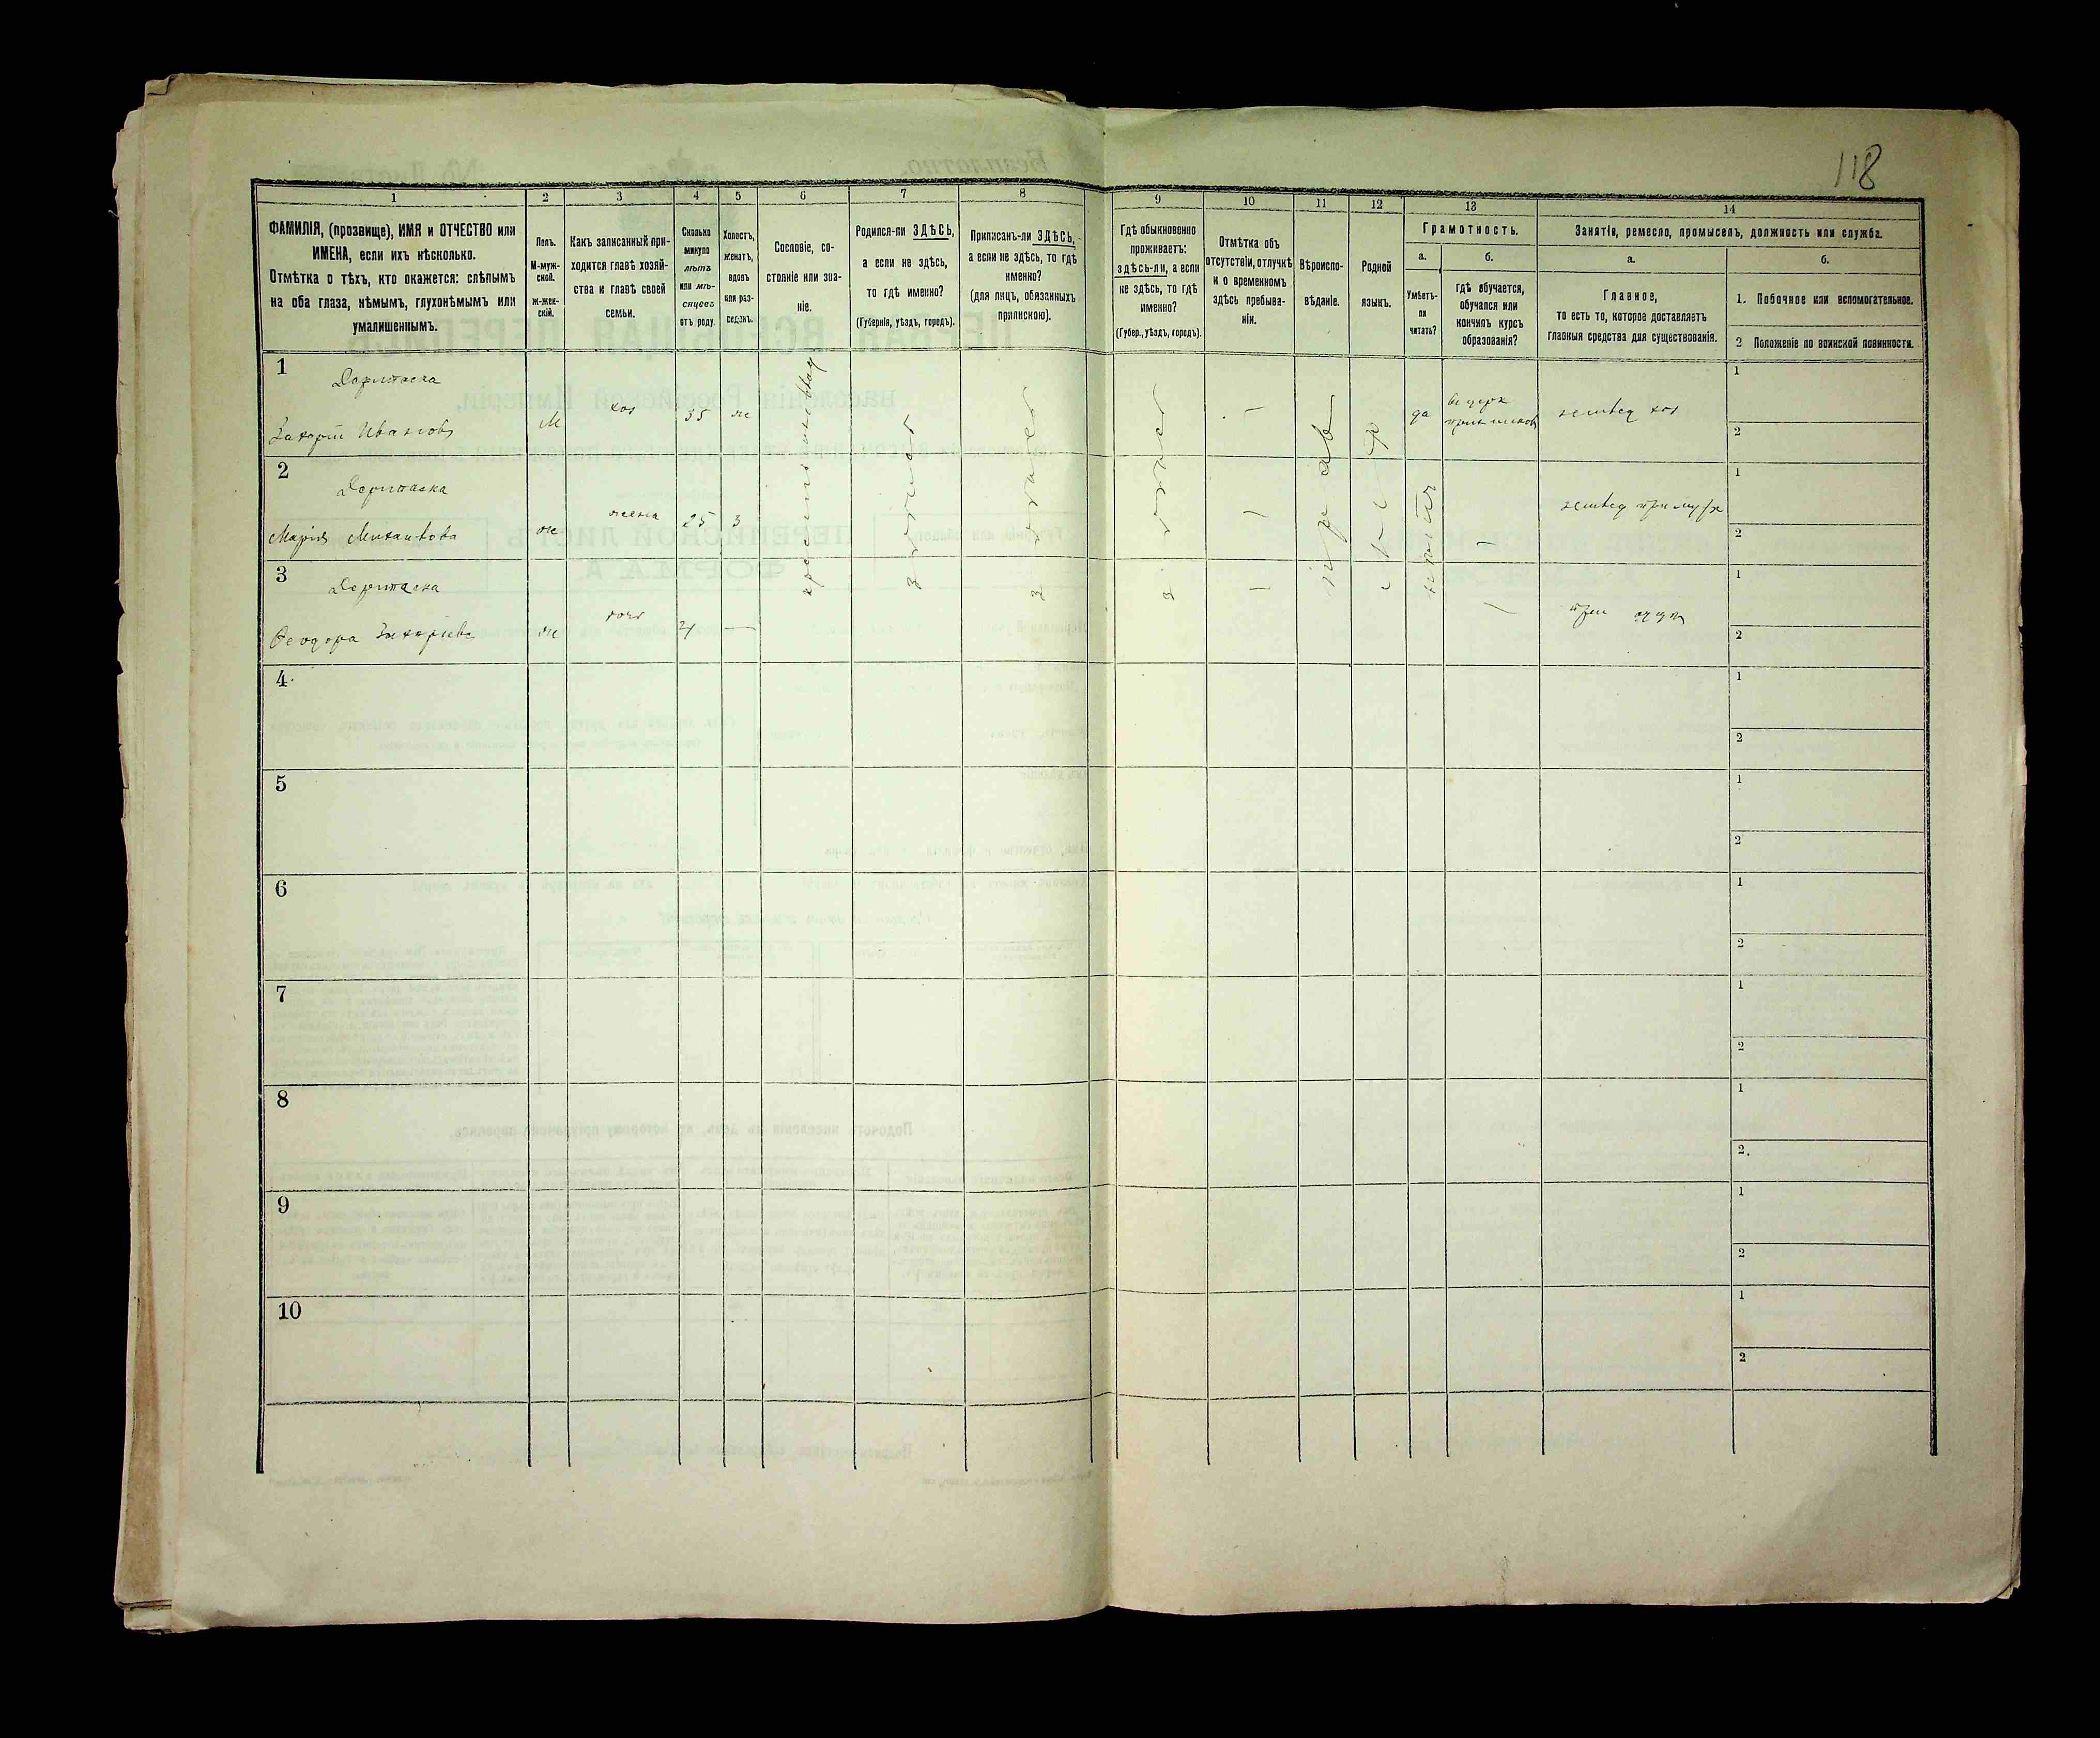 118
1
2
3
4
5
6
7
8
9
10
11
12
13
14
ФАМИЛІЯ, (прозвище), ИМЯ и ОТЧЕСТВО или
ИМЕНА, если ихъ нѣсколько.
Отмѣтка о тѣхъ, кто окажется: слѣпымъ
на оба глаза, нѣмымъ, глухонѣмымъ или
умалишеннымъ.
Полъ.
М-муж-
ской.
ж-жен-
скій.
Какъ записанный при-
ходится главѣ хозяй-
ства и главѣ своей
семьи.
Сколько
минуло
лѣтъ
или мѣ-
сяцевъ
отъ роду.
Холостъ,
женатъ,
вдовъ
или раз-
веденъ.
Сословіе, со-
стояніе или зва-
ніе.
Родился-ли ЗДѢСЬ,
а если не здѣсь,
то гдѣ именно?
(Губернія, уѣздъ, городъ).
Приписанъ-ли ЗДѢСЬ,
а если не здѣсь, то гдѣ
именно?
(для лицъ, обязанныхъ
припискою).
Гдѣ обыкновенно
проживаетъ:
здѣсь-ли, а если
не здѣсь, то гдѣ
именно?
(Губер., уѣздъ, городъ).
Отмѣтка объ
отсутствіи, отлучкѣ
и о временномъ
здѣсь пребыва-
ніи.
Вѣроиспо-
вѣданіе.
Родной
языкъ.
Грамотность.
а.
Умѣетъ-
ли
читать?
б.
гдѣ обучается,
обучался или
кончилъ курсъ
образованія?
Занятія, ремесло, промыселъ, должность или служба.
а.
Главное,
то есть то, которое доставляетъ
главныя средства для существованія.
б.
1. Побочное или вспомогательное.
2 Положеніе по воинской повинности.
1
Захарій Ивановъ
М
хоз
35
ж
да
землед хоз
1
2
2
Марія Михаилова
ж
жена
25
3
землед при мужѣ
1
2
3
Феодора Захаріева
ж
дочь
—
при отцѣ
1
2
4
1
2
5
1
2
6
1
2
7
1
2
8
1
2.
9
1
2
10
1
2